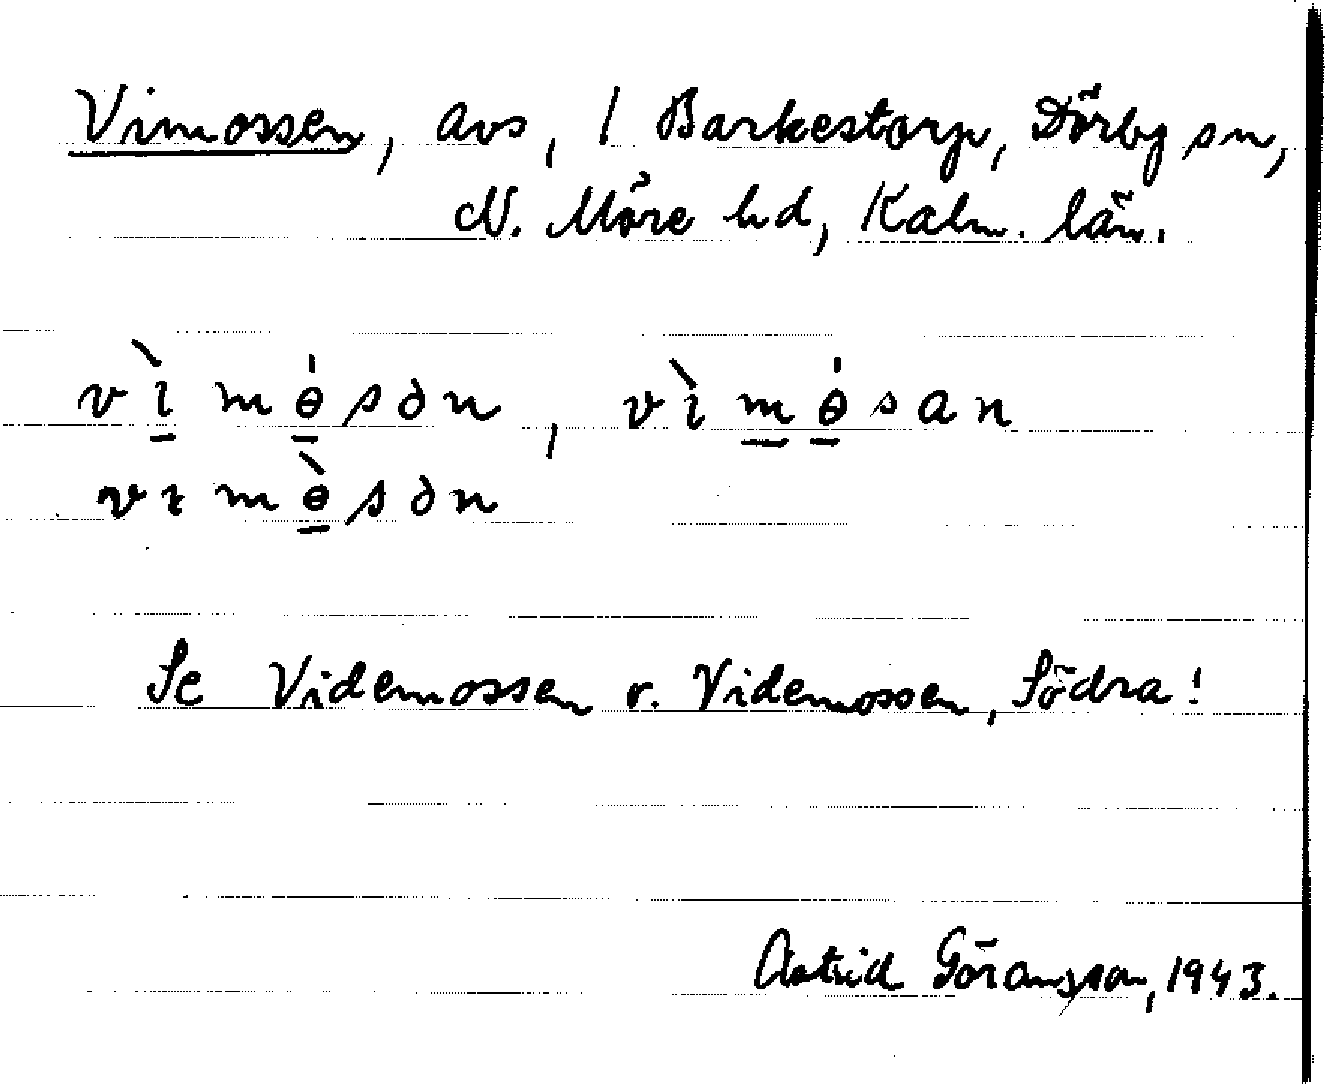 Vimossen, avs, 1 Barkestorp, Dörby sn,
N. Möre hd, Kalm. län.
vı̀mɵ́sən, vìmɵ́san
vımɵ̀sən
Se Videmossen v. Videmossen, Södra!
Astrid Göransson, 1943.